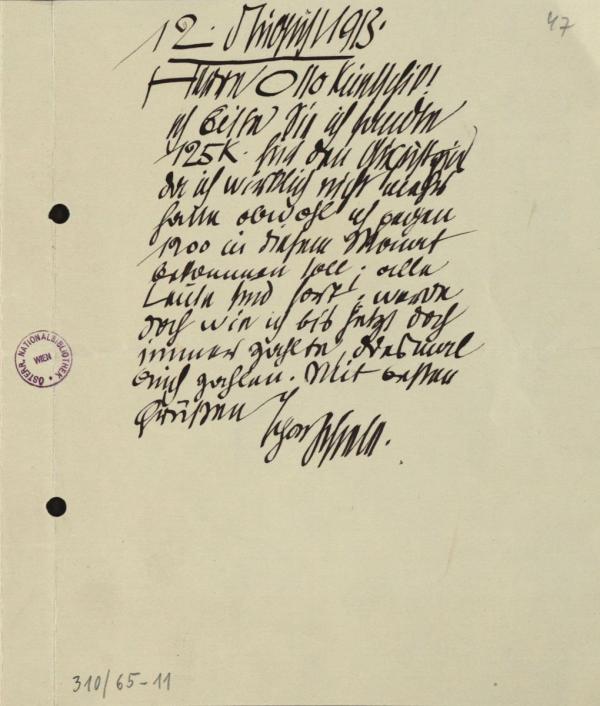 47
12. August 1913.
Herrn Otto
ich bitte Sie ich sandte
125K. für den
da ich wirklich nicht mehr
hatte obwohl ich gegen
1200 in diesem Monat
bekommen soll; alle
Leute sind fort, werde
doch wie ich bis jetzt doch
immer zahlte, diesmal
auch zahlen. Mit besten
Grüßen
Egon Schiele.
ÖSTERR. NATIONALBIBLIOTHEK
WIEN
310/65-11